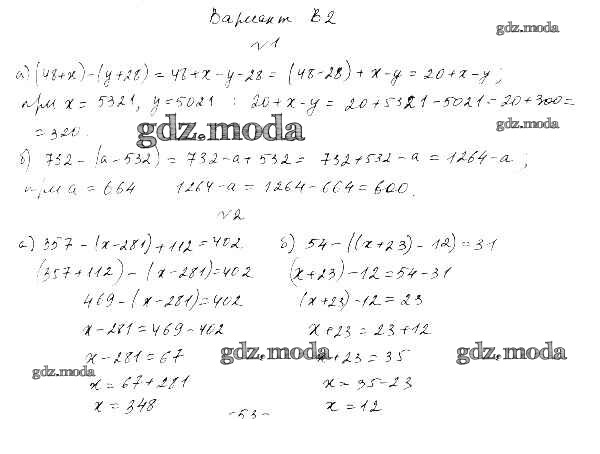 Вариант В2
gdz.moda
№1
а) (48+x)-(y+28) = 48+x-y-28 = (48-28)+x-y = 20+x-y;
при x = 5321, y=5021 : 20+x-y = 20+5321-5021=20+300=
gdz.moda
= 320.
gdz.moda
б) 732-(a-532) = 732-a+532= 732+532-a = 1264-a;
при a = 664 1264-a = 1264-664=600.
№2
а) 357-(x-281)+112=402
(357+112)-(x-281)=402
469-(x-281)=402
x-281=469-402
x-281=67
x=67+281
x=348
б) 54-((x+23)-12)=31
(x+23)-12=54-31
(x+23)-12=23
x+23=23+12
x+23=35
x=35-23
x=12
gdz.moda
gdz.moda
gdz.moda
-53-